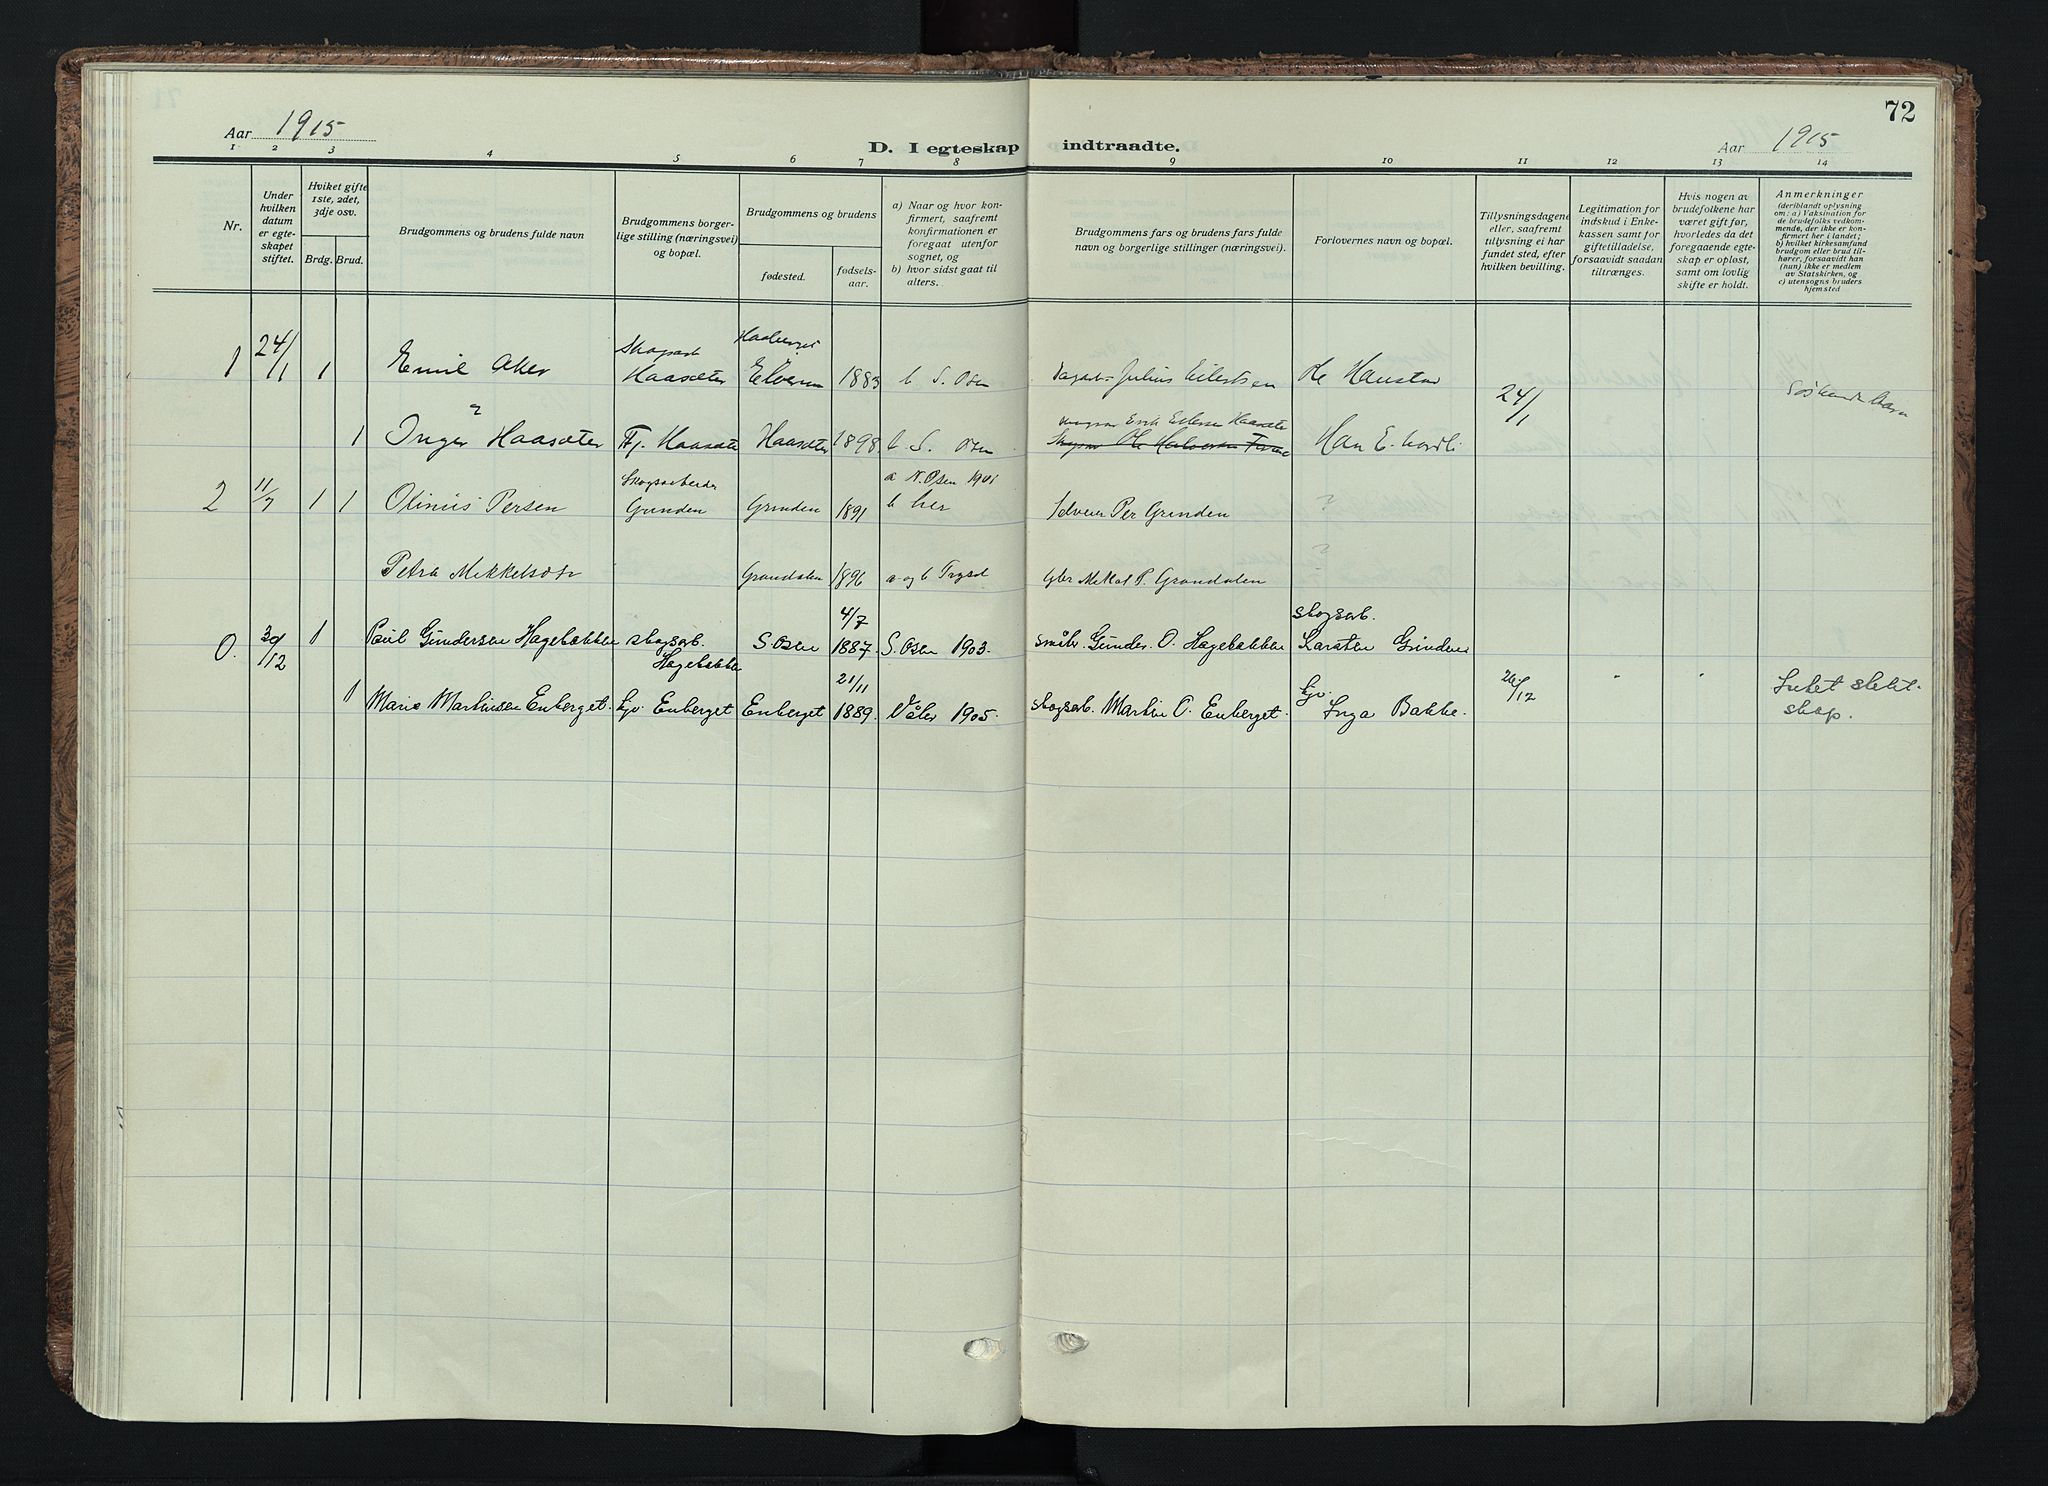 72
Aar 1915
D. I egteskap indtraadte.
Aar 1915
1 2 3 4 5 6 7 8 9 10 11 12 13 14
Nr.
Under hvilken datum er egteskapet stiftet.
Hviket gifte 1ste, 2det, 3dje osv.
Brdg. Brud.
Brudgommens og brudens fulde navn
Brudgommens borgerlige stilling (næringsvei) og bopæl.
Brudgommens og brudens
fødested.
fødselsaar.
a) Naar og hvor konfirmert, saafremt konfirmationen er foregaat utenfor sognet, og
b) hvor sidst gaat til alters.
Brudgommens fars og brudens fars fulde navn og borgerlige stillinger (næringsvei).
Forlovernes navn og bopæl.
Tillysningsdagene eller, saafremt tillysning ei har fundet sted, efter hvilken bevilling.
Legitimation for indskud i Enkekassen samt for giftetilladelse, forsaavidt saadan tiltrænges.
Hvis nogen av brudefolkene har været gift før, hvorledes da det foregaaende egteskap er opløst, samt om lovlig skifte er holdt.
Anmerkninger
(deriblandt oplysning om: a) Vaksination for de brudefolks vedkommende, der ikke er konfirmert her i landet; b) hvilket kirkesamfund brudgom eller brud tilhører, forsaavidt han (hun) ikke er medlem av Statskirken, og c) utensogns bruders hjemsted
1 24/1 1 Emil Aker Haasæter Elverum 1883 b S. Osen Julius Eilertsen Ole 24/1 Søskendebarn
1 Inger Haasæter Fj. Haasæter Haasæter 1898 b S. Osen Erik Haasæter Han E. Nordli
2 11/7 1 1 Olinus Persen Skogsarbeider Grinden Grinden 1891 a N. Osen 1901 b her Selveier Per Grinden ?
Petra Mikkelsdtr Grøndalen 1896 a og b Trysil Gbr Mikkel P. Grøndalen ?
0. 30/12 1 Paul Gundersen Hagebakken skogsarb. Hagebakken S. Osen 4/7 1887. S. Osen 1903. småbr. Gunder O. Hagebakken skogsarb. Karsten Grinden
1 Marie Martinsen Enberget. tjv. Enberget Enberget 21/11 1889. Våler 1905. skogsarb. Martin O. Enberget. tjv. Inga Bakke. 26/12 " " Intet slektskap.